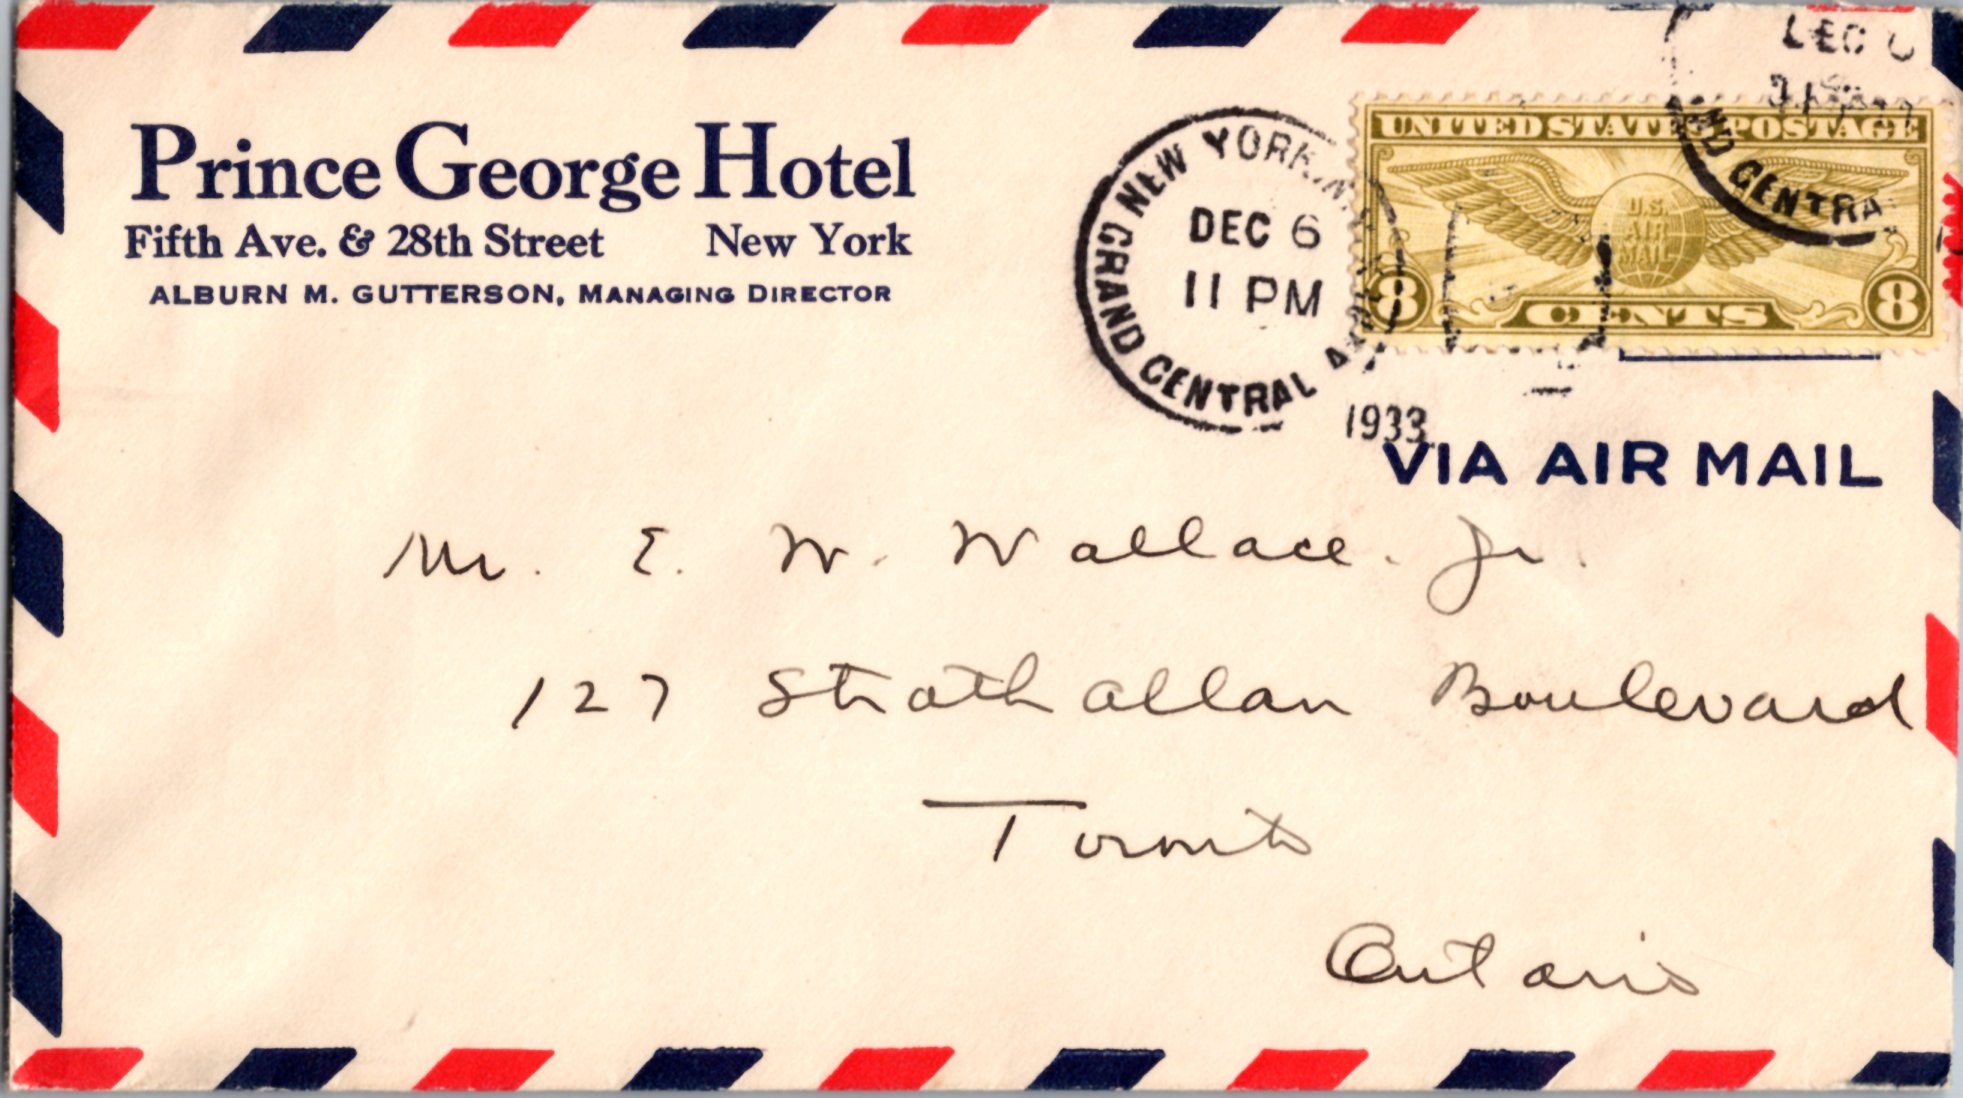 Prince George Hotel
Fifth Ave. & 28th Street New York
ALBURN M. GUTTERSON, MANAGING DIRECTOR
NEW YORK, N.Y.
DEC 6
11 PM
GRAND CENTRAL
1933
UNITED STATES POSTAGE
U.S.
AIR
MAIL
8 CENTS 8
CENTRAL
VIA AIR MAIL
Mr. E. W. Wallace. Jr.
127 Strathallan Boulevard
Toronto
Ontario